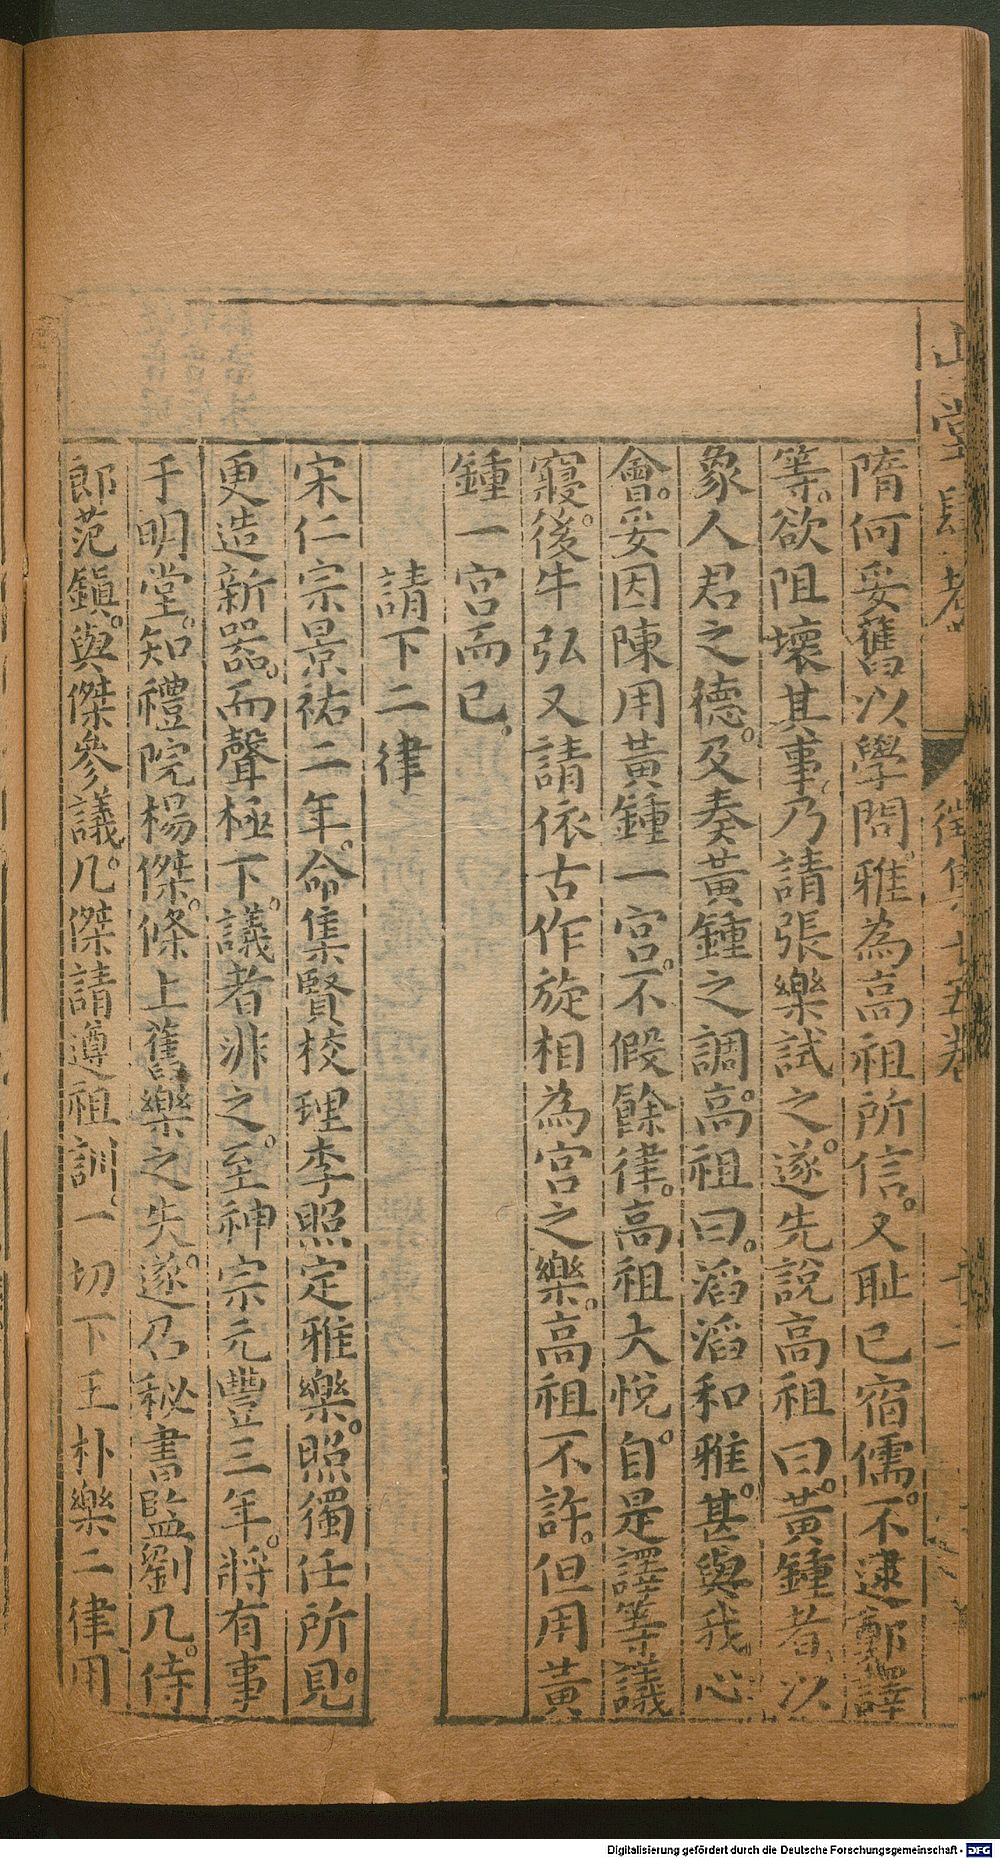 山堂肆考 徵集十五卷 十二
隋何妥舊以學問。雅為高祖所信。又恥已宿儒。不逮鄭譯
等。欲阻壞其事。乃請張樂試之。遂先說高祖曰。黃鍾者。以
象人君之德。及奏黃鍾之調。高祖曰。滔滔和雅。甚與我心
會。妥因陳用黃鍾一宮。不假餘律。高祖大悅。自是譯等議
寢。後牛弘又請依古作旋相為宮之樂。高祖不許。但用黃
鍾一宮而已。
請下二律
宋仁宗景祐二年。命集賢校理李照定雅樂。照獨任所見。
更造新器。而聲極下。議者非之。至神宗元豐三年。將有事
于明堂。知禮院楊傑。條上舊樂之失。遂召秘書監劉几。侍
郎范鎮。與傑參議。几傑請遵祖訓。一切下王朴樂二律。用
Digitalisierung gefördert durch die Deutsche Forschungsgemeinschaft - DFG